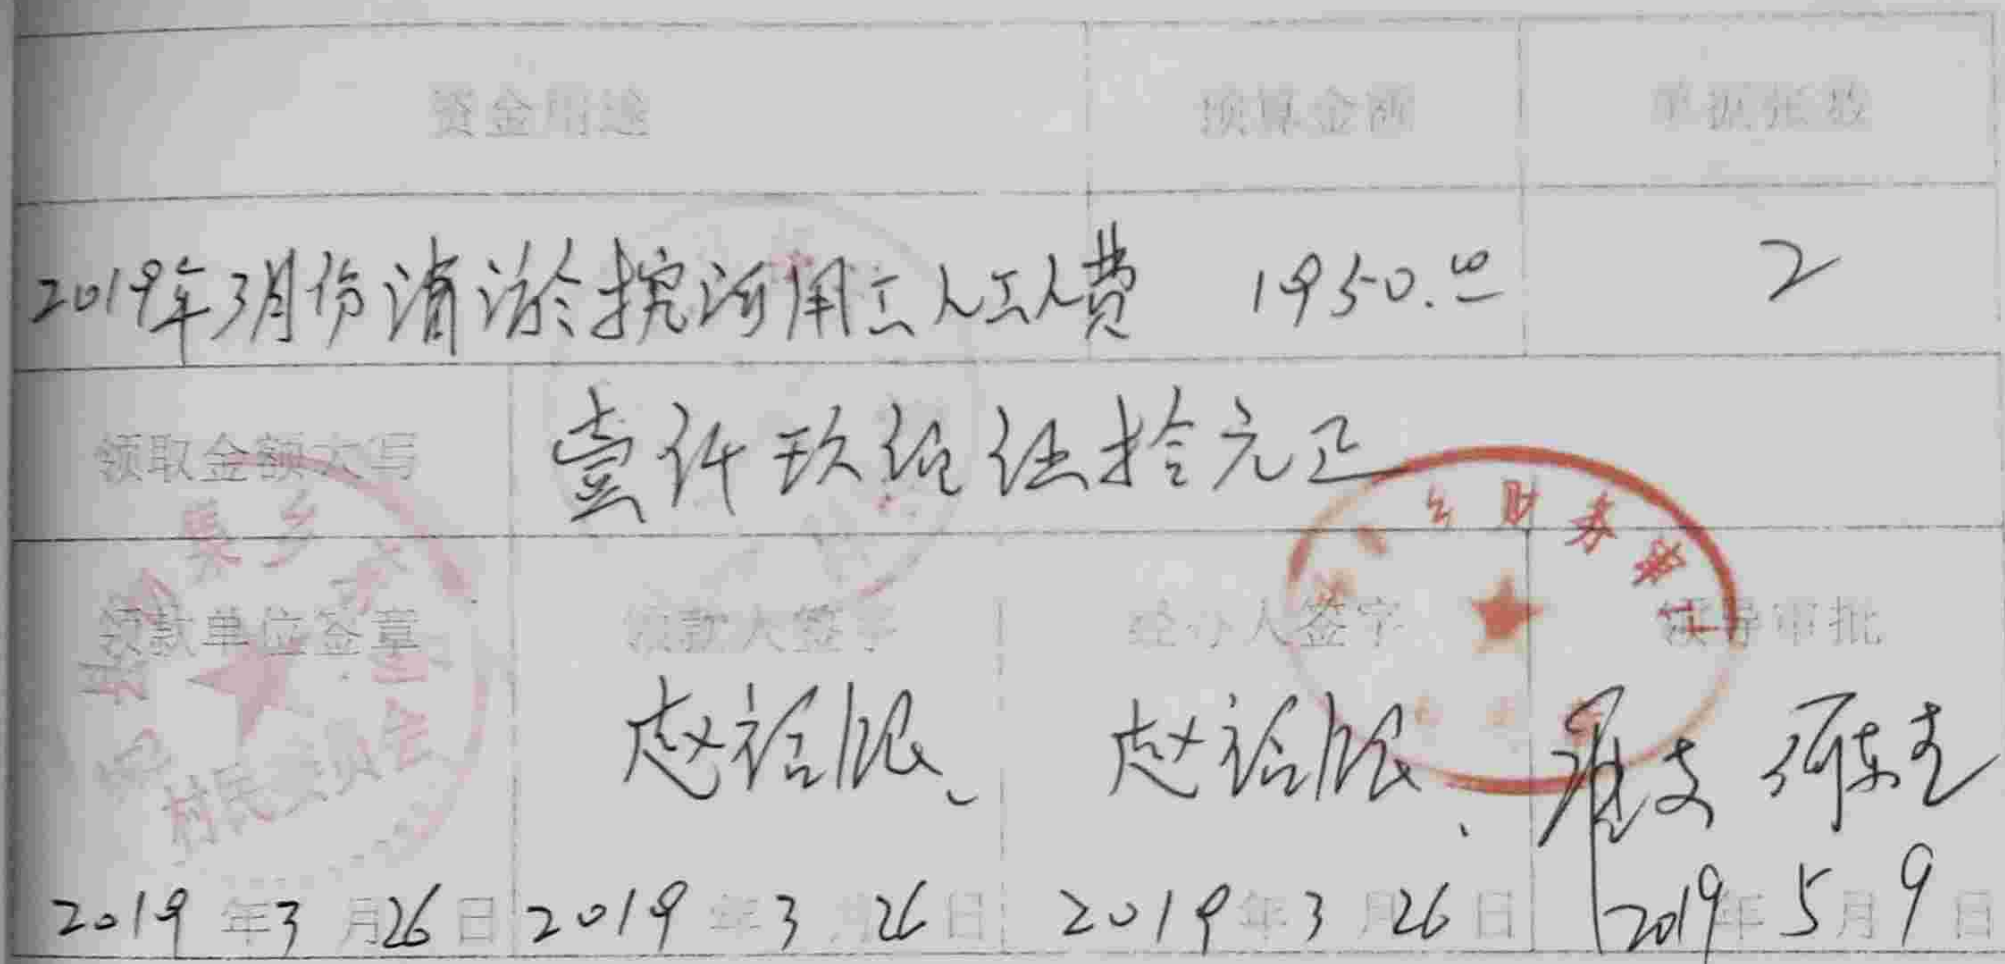 资金用途 预算金额 单据张数
2019年3月份清淤挖河用工人工人费 1950.00 2
领取金额大写 壹仟玖佰伍拾元正
集乡
财务
领款单位签章 领款人签字 经办人签字 领导审批
村民委员会
赵 赵 准支
2019年3月26日 2019年3月26日 2019年3月26日 2019年5月9日